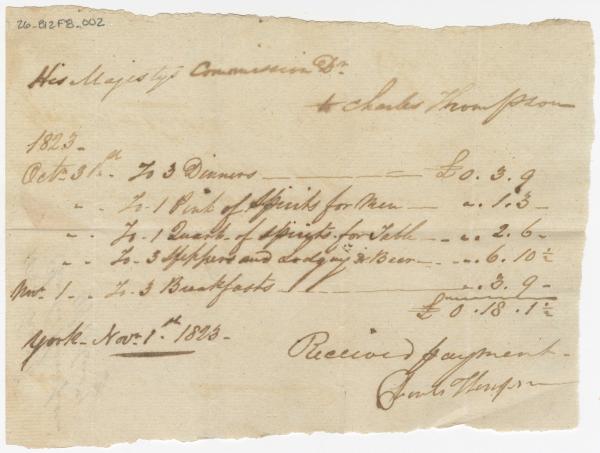 26-B12F8-002
His Majesty's Commission Dr
to Charles Thompson
1823-
Octr 31st - To 3 Dinners - £0. 3. 9
" - To 1 Pint of Spirits for Men - ". 1. 3 -
" - To 1 Quart of Spirits for Table - ". 2. 6 -
" - To 3 Suppers and Lodging & Beer - ". 6. 10 1/2
Novr 1 - " To 3 Breakfasts - ". 3. 9 -
£0. 18. 1 1/2
York - Novr 1st 1823 -
Received payment -
Thompson